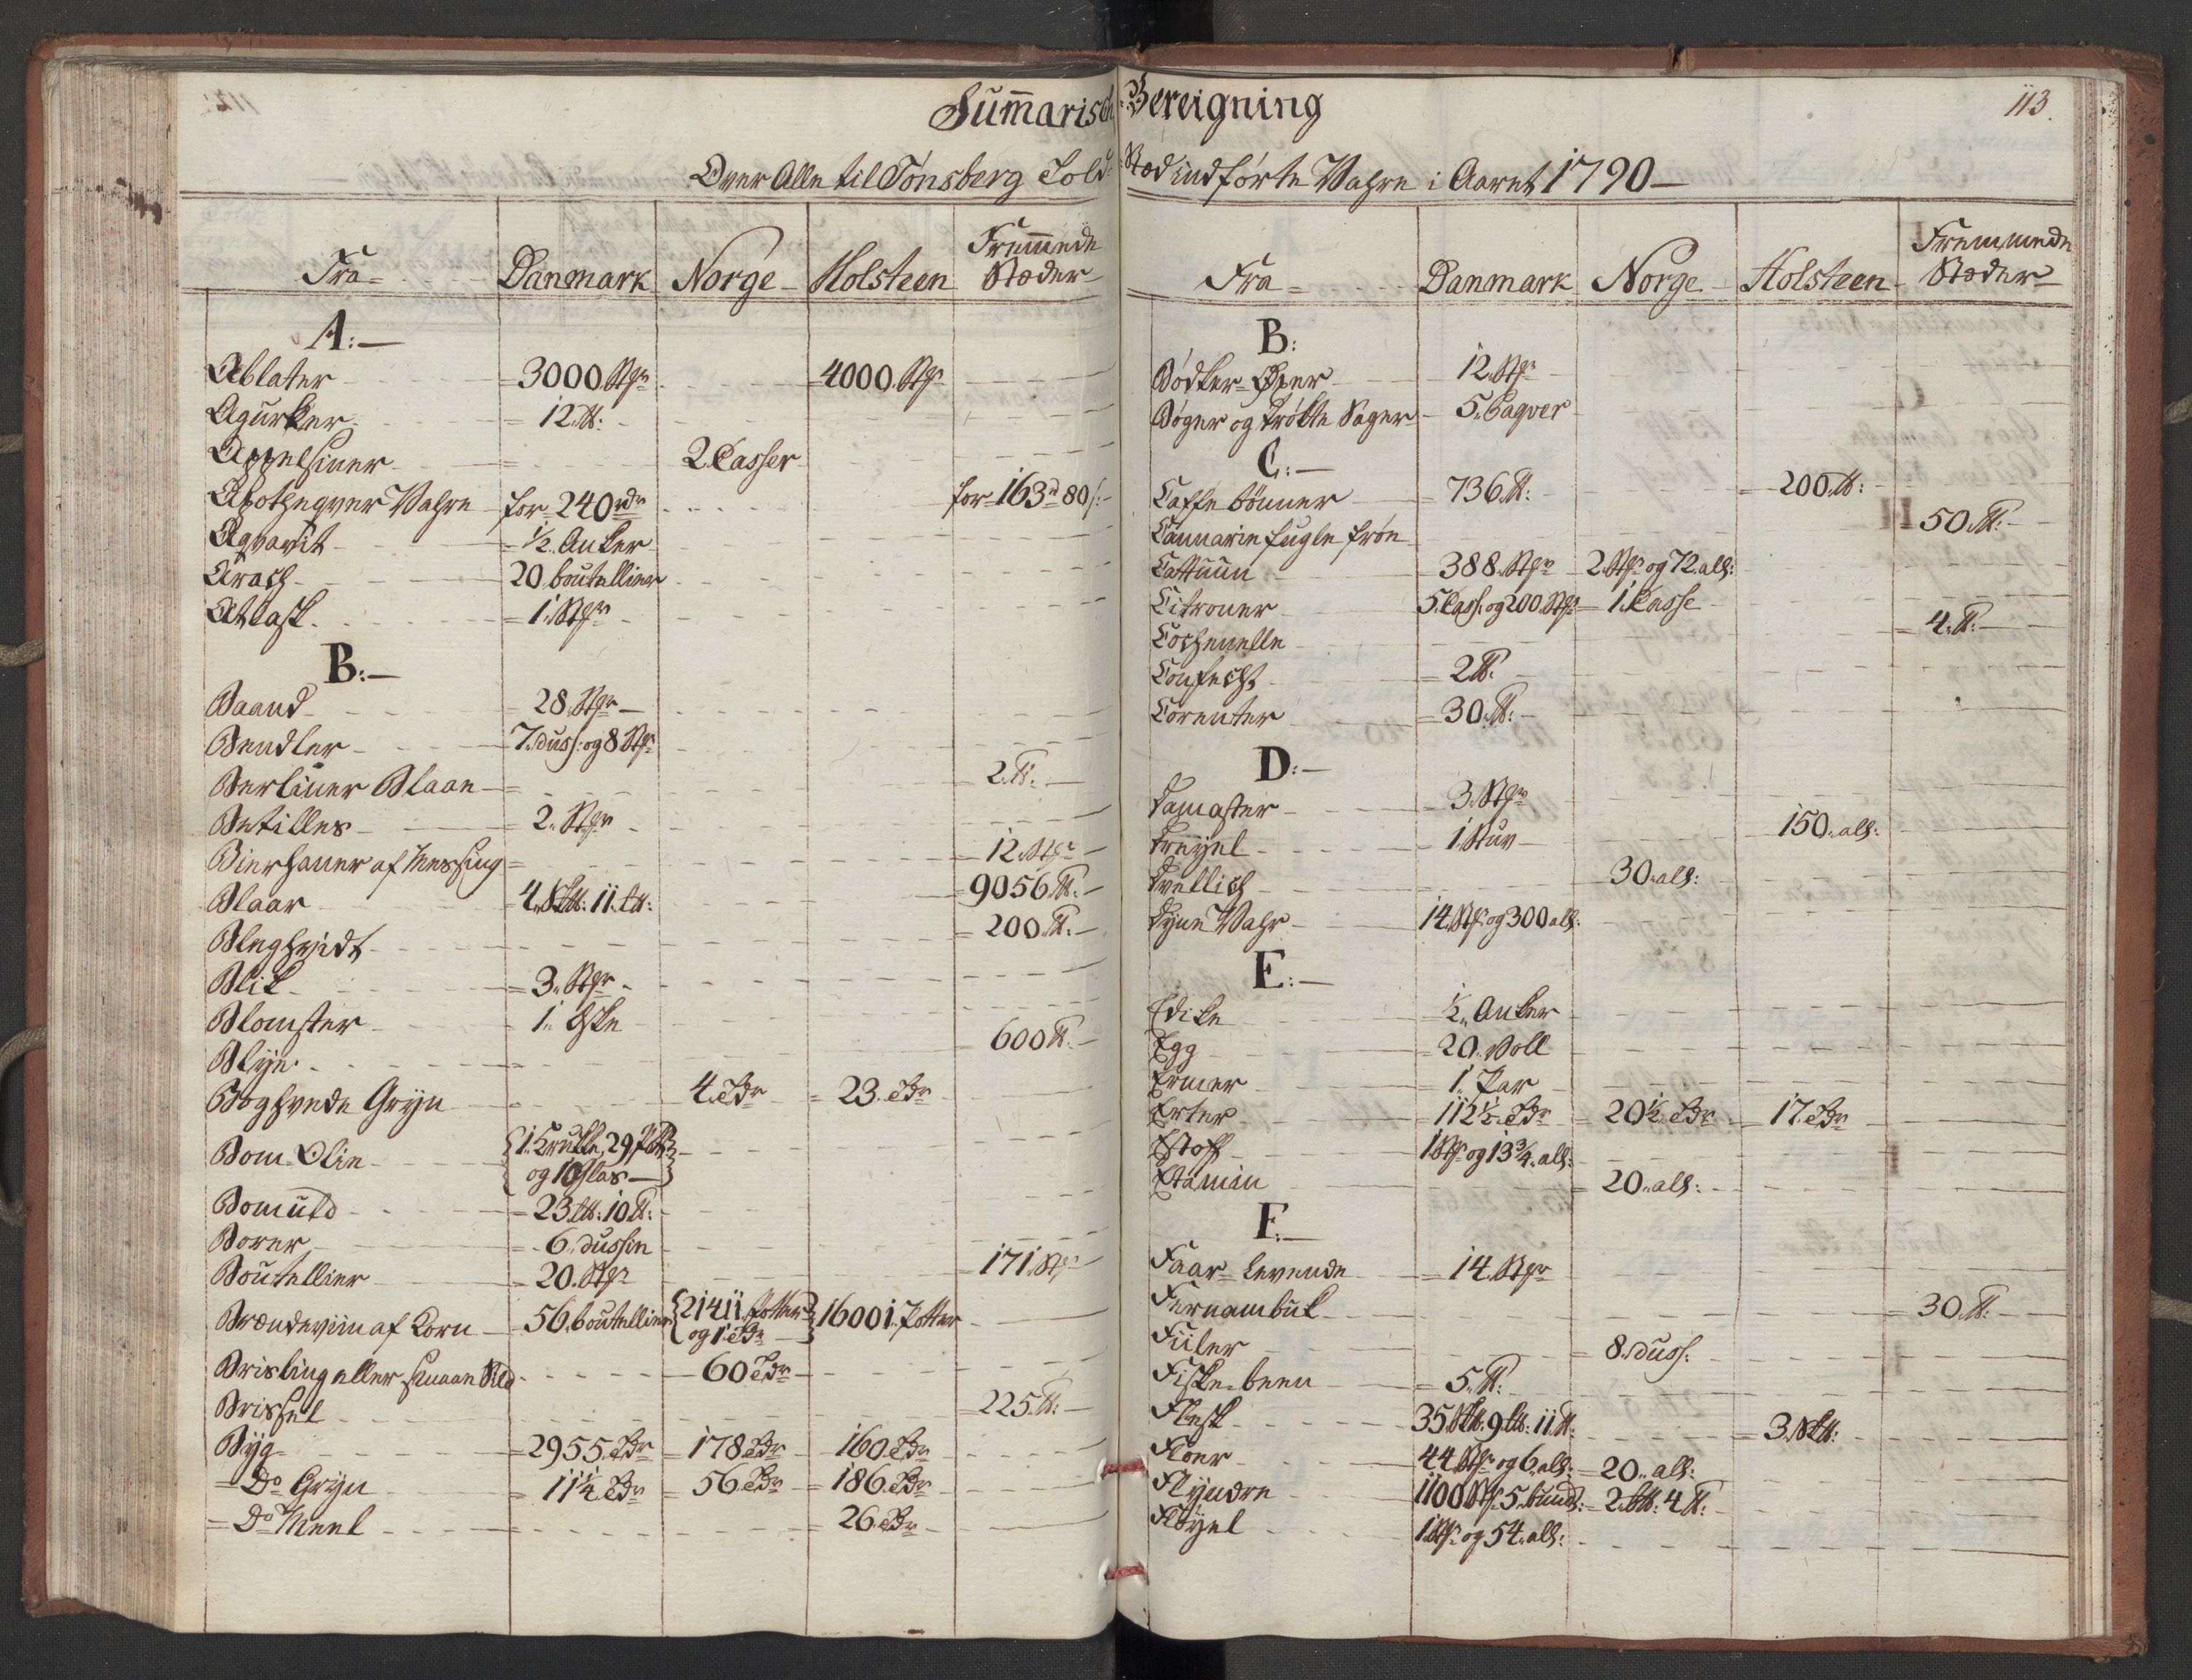 Summarisch Bereigning
113.
Over Alle til Tønsberg Told-Stæd indførte Vahre i Aaret 1790 —
Fra = Danmark Norge Holsteen Fremmede Stæder
A: —
Ablater = 3000 Stkr = 4000 Stkr
Agurker = 12 ℔:
Appelsiner = 2 Casser
Apotheqver Vahre for 240 rdr for 163 rd 80 s:
Aqvavit = ½ Anker
Arach 20 bouteillier
Atlask = 1 Stkr
B: —
Baand = 28 Stkr
Bendler = 7 duss: og 8 Stkr
Berliner Blaae = 2 ℔:
Betilles = 2 Stkr
Bierhaner af Messing = 12 Stkr
Blaar = 4 S℔: 11 L℔: = 9056 ℔:
Bleghvidt = 200 ℔:
Blik = 3 Stkr
Blomster = 1 Eske
Blye = 600 ℔:
Boghvede Gryn 4 Tdr = 23 Tdr
Bom-Olie {1 Krukke, 29 Pott:
og 10 Glas —}
Bomuld = 23 L℔: 10 ℔:
Borer = 6 dussin
Bouteillier = 20 Stkr = 171 Stkr
Brændeviin af Korn 56 bouteillier {21411 Potter
og 1 Tdr} 16001 Potter
Brisling eller smaae Sild 60 Tdr
Brissel = 225 ℔:
Byg = 2955 Tdr = 178 Tdr 160 Tdr
= Do Gryn = 11¼ Tdr = 56 Tdr = 186 Tdr
= Do Meel = 26 Tdr
Fra = Danmark Norge Holsteen Fremmede Stæder
B:
Bødker-Øxer 12 Stkr
Bøger og trökte Sager 5 Paqver
C: —
Caffe bönner 736 ℔: = 200 ℔:
Cannariefugle frøe 50 ℔:
Cattuun 388 Stkr 2 Stkr og 72 all:
Citroner 5 Cass: og 200 Stkr = 1 Casse
Cochenelle = 4 ℔:
Confecht = 2 ℔:
Corenter = 30 ℔:
D: —
Damaster 3 Stkr
Dreyel 1 Stuv 150 all:
Dvellich 30 all:
Dyne Vahr 14 Stkr og 300 all:
E: —
Edike ½ Anker
Egg = 20 Voll
Ermer = 1 Par
Erter = 112½ Tdr = 20½ Tdr = 17 Tdr
Estoff 1 Stk og 13¾ all:
Etamin = 20 all:
F: —
Faar-Levende = 14 Stkr
Fernambuk = 30 ℔:
Fiiler = 8 duss:
Fiske-been = 5 ℔:
Flesk 35 S℔: 9 L℔: 11 ℔: = 3 S℔:
Floer 44 Stkr og 6 all: = 20 all:
Flyndre 1100 Stk 5 bundt: = 2 L℔: 4 ℔:
Fløyel 1 Stk og 54 all: